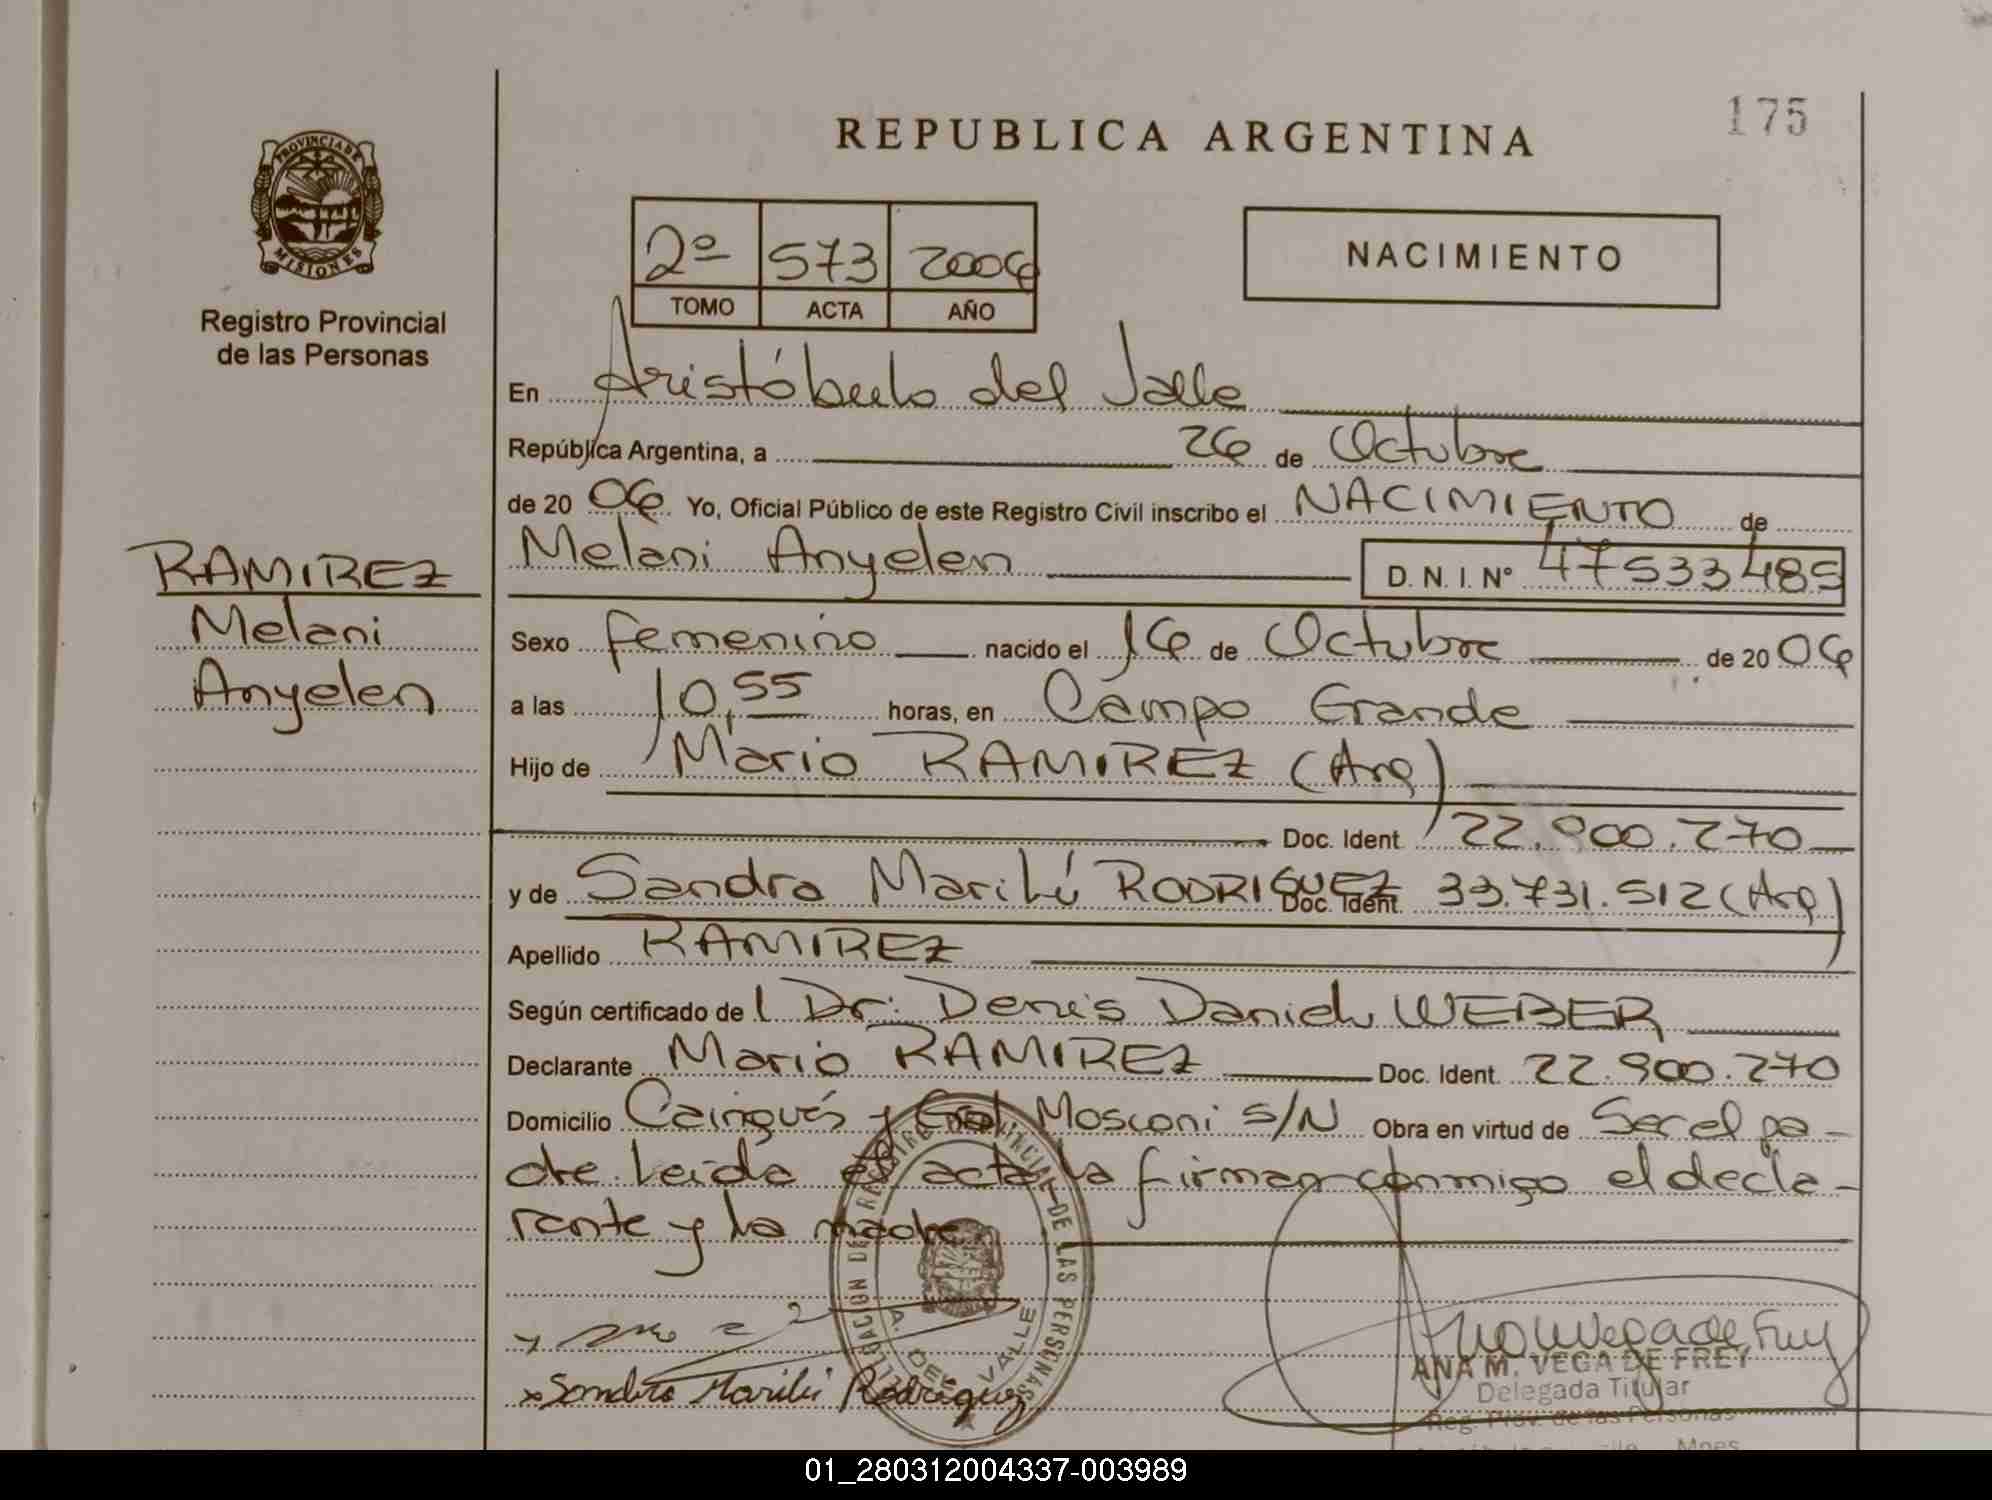 175
REPUBLICA ARGENTINA
PROVINCIA DE
MISIONES
Registro Provincial
de las Personas
2º 573 2006
TOMO ACTA AÑO
NACIMIENTO
En Aristóbulo del Valle
República Argentina, a 26 de Octubre
de 20 06 Yo, Oficial Público de este Registro Civil inscribo el NACIMIENTO de
Melani Anyelen D. N. I. Nº 47533485
RAMIREZ
Melani
Anyelen
Sexo femenino nacido el 16 de Octubre de 20 06
a las 10,55 horas, en Campo Grande
Hijo de Mario RAMIREZ (Arg)
Doc. Ident. 22.900.270
y de Sandra Marilú RODRIGUEZ Doc. Ident. 33.731.512 (Arg)
Apellido RAMIREZ
Según certificado de l Dr: Denis Daniel WEBER
Declarante Mario RAMIREZ Doc. Ident. 22.900.270
Domicilio Cainguás y Gral Mosconi S/N Obra en virtud de Ser el pa-
dre. Leída el acta la firman conmigo el decla-
rante y la madre.
DELEGACION DE REGISTRO PROVINCIAL DE LAS PERSONAS
A. DEL VALLE
x Sandra Marilú Rodriguez
Ana M Vega de Frey
ANA M. VEGA DE FREY
Delegada Titular
Reg. Prov. de las Personas
Mnes
01_280312004337-003989